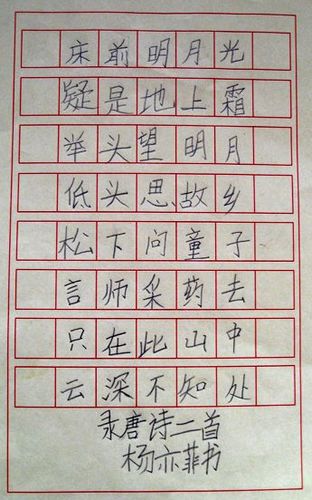 床前明月光
疑是地上霜
举头望明月
低头思故乡
松下问童子
言师采药去
只在此山中
云深不知处
录唐诗二首
杨亦菲书